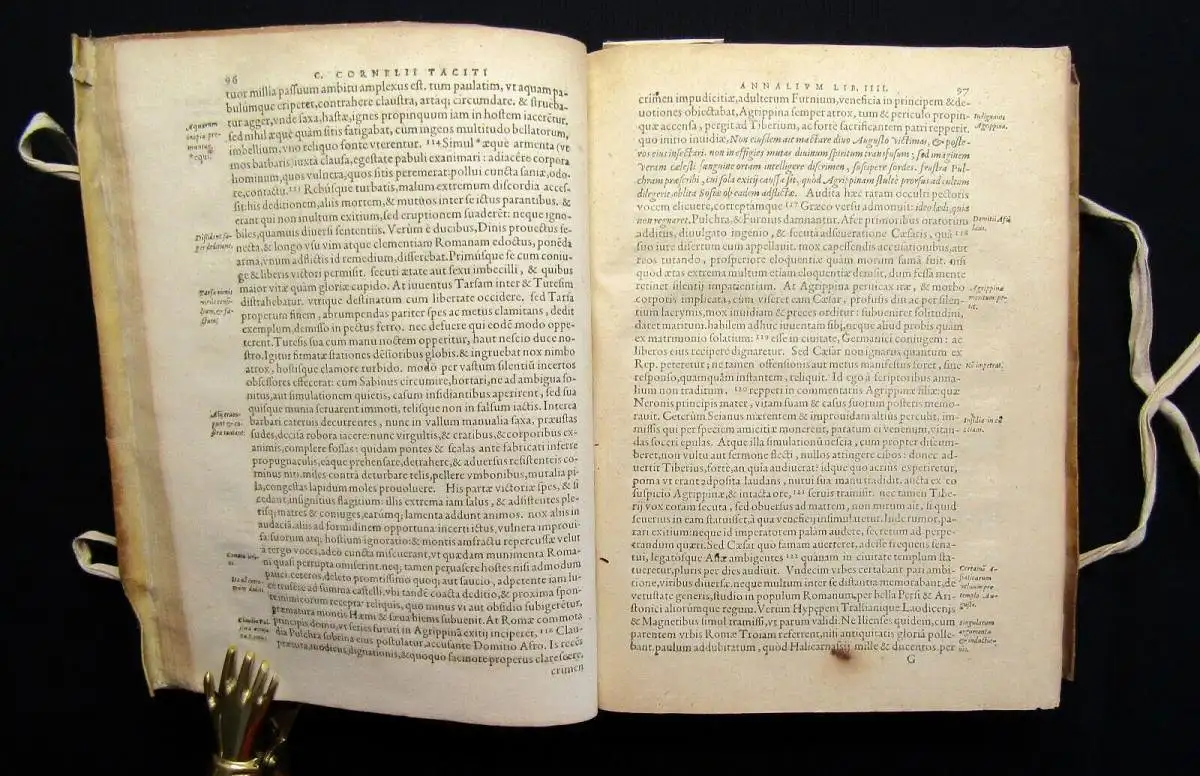 96
C. CORNELII TACITI
tuor millia passuum ambitu amplexus est. tum paulatim, vt aquam pa-
bulúmque eriperet, contrahere claustra, artaq; circumdare. & strueba-
tur agger, vnde saxa, hastæ, ignes propinquum iam in hostem iacerẽtur.
sed nihil æquè quàm sitis fatigabat, cùm ingens multitudo bellatorum,
imbellium, vno reliquo fonte vterentur. 114 Simul * æque armenta (vt
mos barbaris) iuxta clausa, egestate pabuli exanimari: adiacẽre corpora
hominum, quos vulnera, quos sitis peremerat: pollui cuncta sanie, odo-
re, contactu. Rebúsque turbatis, malum extremum discordia acces-
sit: his deditionem, aliis mortem, & mutuos inter se ictus parantibus. &
erant qui non inultum exitium, sed eruptionem suaderẽt: neque igno-
biles, quamuis diuersi sententiis. Verùm è ducibus, Dinis prouectus se-
necta, & longo vsu vim atque clementiam Romanam edoctus, ponẽda
arma, vnum adflictis id remedium, disserebat. Primúsque se cum coniu-
ge & liberis victori permisit. secuti ætate aut sexu imbecilli, & quibus
maior vitæ quàm gloriæ cupido. At iuuentus Tarsam inter & Turesim
distrahebatur. vtrique destinatum cum libertate occidere. sed Tarsa
properum finem, abrumpendas pariter spes ac metus clamitans, dedit
exemplum, demisso in pectus ferro. nec defuere qui eodẽ modo oppe-
terent. Turesis sua cum manu noctem opperitur, haut nescio duce no-
stro. Igitur firmatæ stationes dẽsioribus globis. & ingruebat nox nimbo
atrox, hostisque clamore turbido. modò per vastum silentiũ incertos
obsessores effecerat: cùm Sabinus circumire, hortari, ne ad ambigua so-
nitus, aut simulationem quietis, casum insidiantibus aperirent, sed sua
quisque munia seruarent immoti, telisque non in falsum iactis. Interea
barbari cateruis decurrentes, nunc in vallum manualia saxa, præustas
sudes, decisa robora iacere: nunc virgultis, & cratibus, & corporibus ex-
animis, complere fossas: quidam pontes & scalas antè fabricati inferre
propugnaculis, eáque prehensare, detrahere, & aduersus resistenteis co-
minus niti. miles contrà deturbare telis, pellere vmbonibus, muralia pi-
la, congestas lapidum moles prouoluere. His partæ victoriæ spes, & si
cedant, insignitius flagitium: illis extrema iam salus, & adsistentes ple-
risq; matres & coniuges, earúmq; lamenta addunt animos. nox aliis in
audaciã, aliis ad formidinem opportuna: incerti ictus, vulnera improui-
sa: suorum atq; hostium ignoratio: & montis amfractu repercussæ velut
à tergo voces, adeò cuncta miscuerant, vt quædam munimenta Roma-
ni quasi perrupta omiserint. neq; tamen peruasere hostes nisi admodum
pauci. ceteros, deleto promtissimo quoq; aut saucio, adpetente iam lu-
ce trusere ad summa castelli. vbi tandẽ coacta deditio, & proxima spon-
te incolarum recepta: reliquis, quo minus vi aut obsidio subigerẽtur,
præmatura montis Hæmi & sæua hiems subuenit. At Romæ commota
principis domu, vt series futuri in Agrippinã exitij inciperet, 116 Clau-
dia Pulchra sobrina eius postulatur, accusante Domitio Afro. Is recẽs
prætura, modicus dignationis, & quoquo facinore properus clarescere,
crimen
Aquarum
inopia pre-
muntur
equi.
Dissident su-
per deditione.
Tarsa
Alij
Claudia Pul-
ANNALIVM LIB. IIII.
97
crimen impudicitiæ, adulterum Furnium, veneficia in principem & de-
uotiones obiectabat, Agrippina semper atrox, tum & periculo propin-
quæ accensa, pergit ad Tiberium, ac fortè sacrificantem patri repperit.
quo initio inuidiæ, Non eiusdem ait mactare diuo Augusto victimas, & poste-
ros eius insectari. non in effigies mutas diuinum spiritum transfusum: sed imaginem
veram cælesti sanguine ortam intelligere discrimen, suscipere sordes. frustra Pul-
chram præscribi, cui sola exitij caussa est, quòd Agrippinam stultè prorsus ad cultum
dilegerit, oblita Sosiæ ob eadem adflictæ. Audita hæc raram occulti pectoris
vocem elicuere, correptámque 117 Græco versu admonuit: ideo lædi, quia
non regnaret. Pulchra, & Furnius damnantur. Afer primoribus oratorum
additis, diuulgato ingenio, & secuta adseueratione Cæsaris, quâ 118
suo iure disertum eum appellauit. mox capessendis accusationibus, aut
reos tutando, prosperiore eloquentiæ quàm morum famâ fuit. nisi
quòd ætas extrema multum etiam eloquentiæ demsit, dum fessa mente
retinet silentij impatientiam. At Agrippina peruicax iræ, & morbo
corporis implicata, cùm viseret eam Cæsar, profusis diu ac per silen-
tium lacrymis, mox inuidiam & preces orditur: subueniret solitudini,
daret maritum. habilem adhuc iuuentam sibi, neque aliud probis quàm
ex matrimonio solatium: 119 esse in ciuitate, Germanici coniugem: ac
liberos eius recipere dignaretur. Sed Cæsar non ignarus quantum ex
Rep. peteretur; ne tamen offensionis aut metus manifestus foret, sine
responso, quamquàm instantem, reliquit. Id ego à scriptoribus anna-
lium non traditum. 120 repperi in commentariis Agrippinæ filiæ: quæ
Neronis principis mater, vitam suam & casus suorum posteris memo-
rauit. Ceterùm Seianus mærentem & improuidam altiùs perculit, im-
missis qui per speciem amicitiæ monerent, paratum ei venenum, vitan-
das soceri epulas. Atque illa simulationũ nescia, cùm propter discum-
beret, non vultu aut sermone flecti, nullos attingere cibos: donec ad-
uertit Tiberius, fortè, an quia audiuerat: idque quo acriùs experiretur,
poma vt erant adposita laudans, nurui sua manu tradidit. aucta ex eo
suspicio Agrippinæ, & intacta ore, 121 seruis tramisit. nec tamen Tibe-
rij vox coràm secuta, sed obuersus ad matrem, non mirum ait, si quid
seuerius in eam statuisset, à qua veneficij insimularetur. Inde rumor, pa-
rari exitium: neque id imperatorem palam audere, secretum ad perpe-
trandum quæri. Sed Cæsar quo famam auerteret, adesse frequens sena-
tui, legatósque Asiæ ambigentes 122 quânam in ciuitate templum sta-
tueretur, pluris per dies audiuit. Vndecim vrbes certabant pari ambi-
tione, viribus diuersæ. neque multum inter se distantia memorabant, de
vetustate generis, studio in populum Romanum, per bella Persi & Ari-
stonici aliorúmque regum. Verùm Hypępeni Trallianique Laodicenis
& Magnetibus simul tramissi, vt parum validi. Ne Ilienses quidem, cùm
parentem vrbis Romæ Troiam referrent, nisi antiquitatis gloria polle-
bant. paulum addubitatum, quòd Halicarnassij mille & ducentos per
G
Indignatio
Agrippinæ.
Domitij Afri
laus.
Agrippina
maritum pe-
tit.
Nõ impetrat.
Insidiæ in eã
Certamẽ A-
siaticarum
templo Au-
gusti.
singularum
argumenta